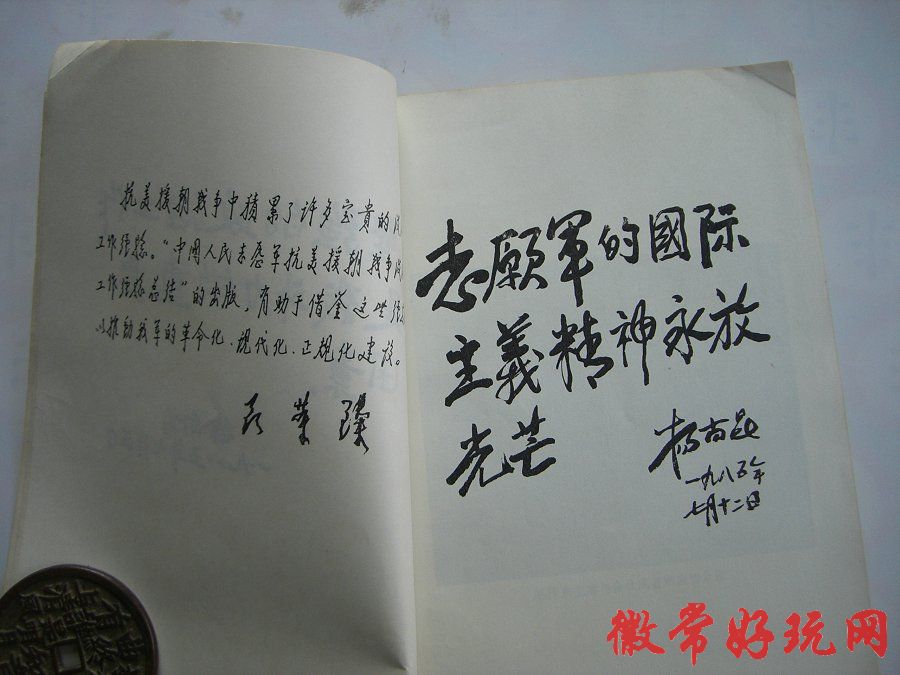 抗美援朝战争中積累了许多宝貴的
工作经验。“中國人民志愿军抗美援朝战争
工作经验总结”的出版，有助于借鉴这些经
以推动我军的革命化、现代化、正规化建设。
聂荣臻
志願军的國际
主義精神永放
光芒
杨尚昆
一九八五年
七月十二日
徽常好玩网